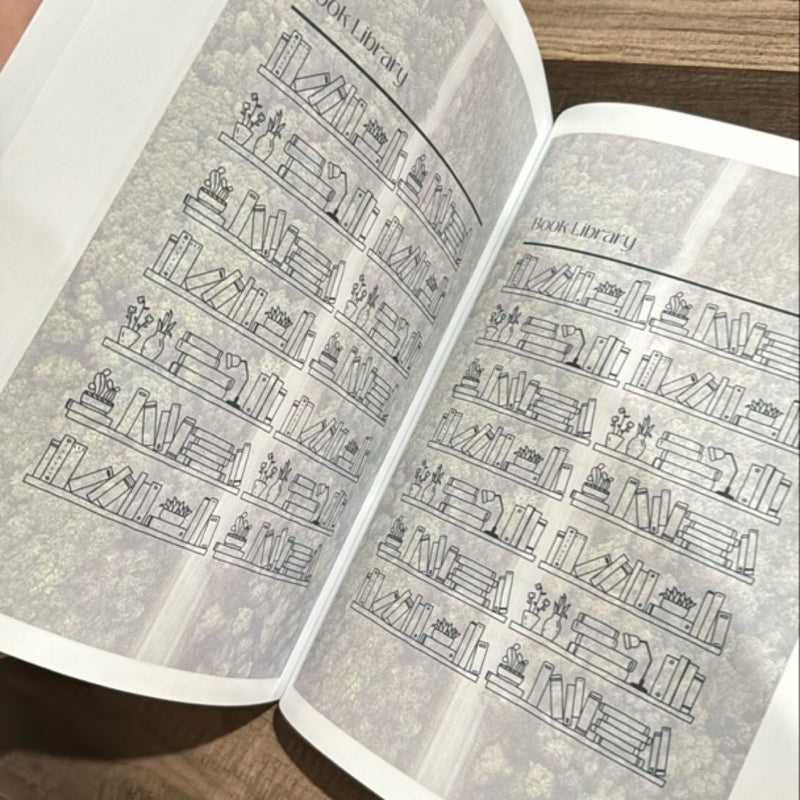 Book Library
Book Library